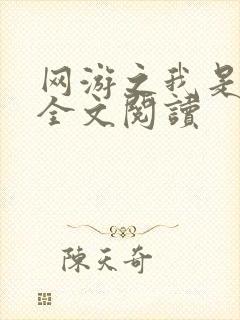 网游之我是
全文閱讀
陳天奇